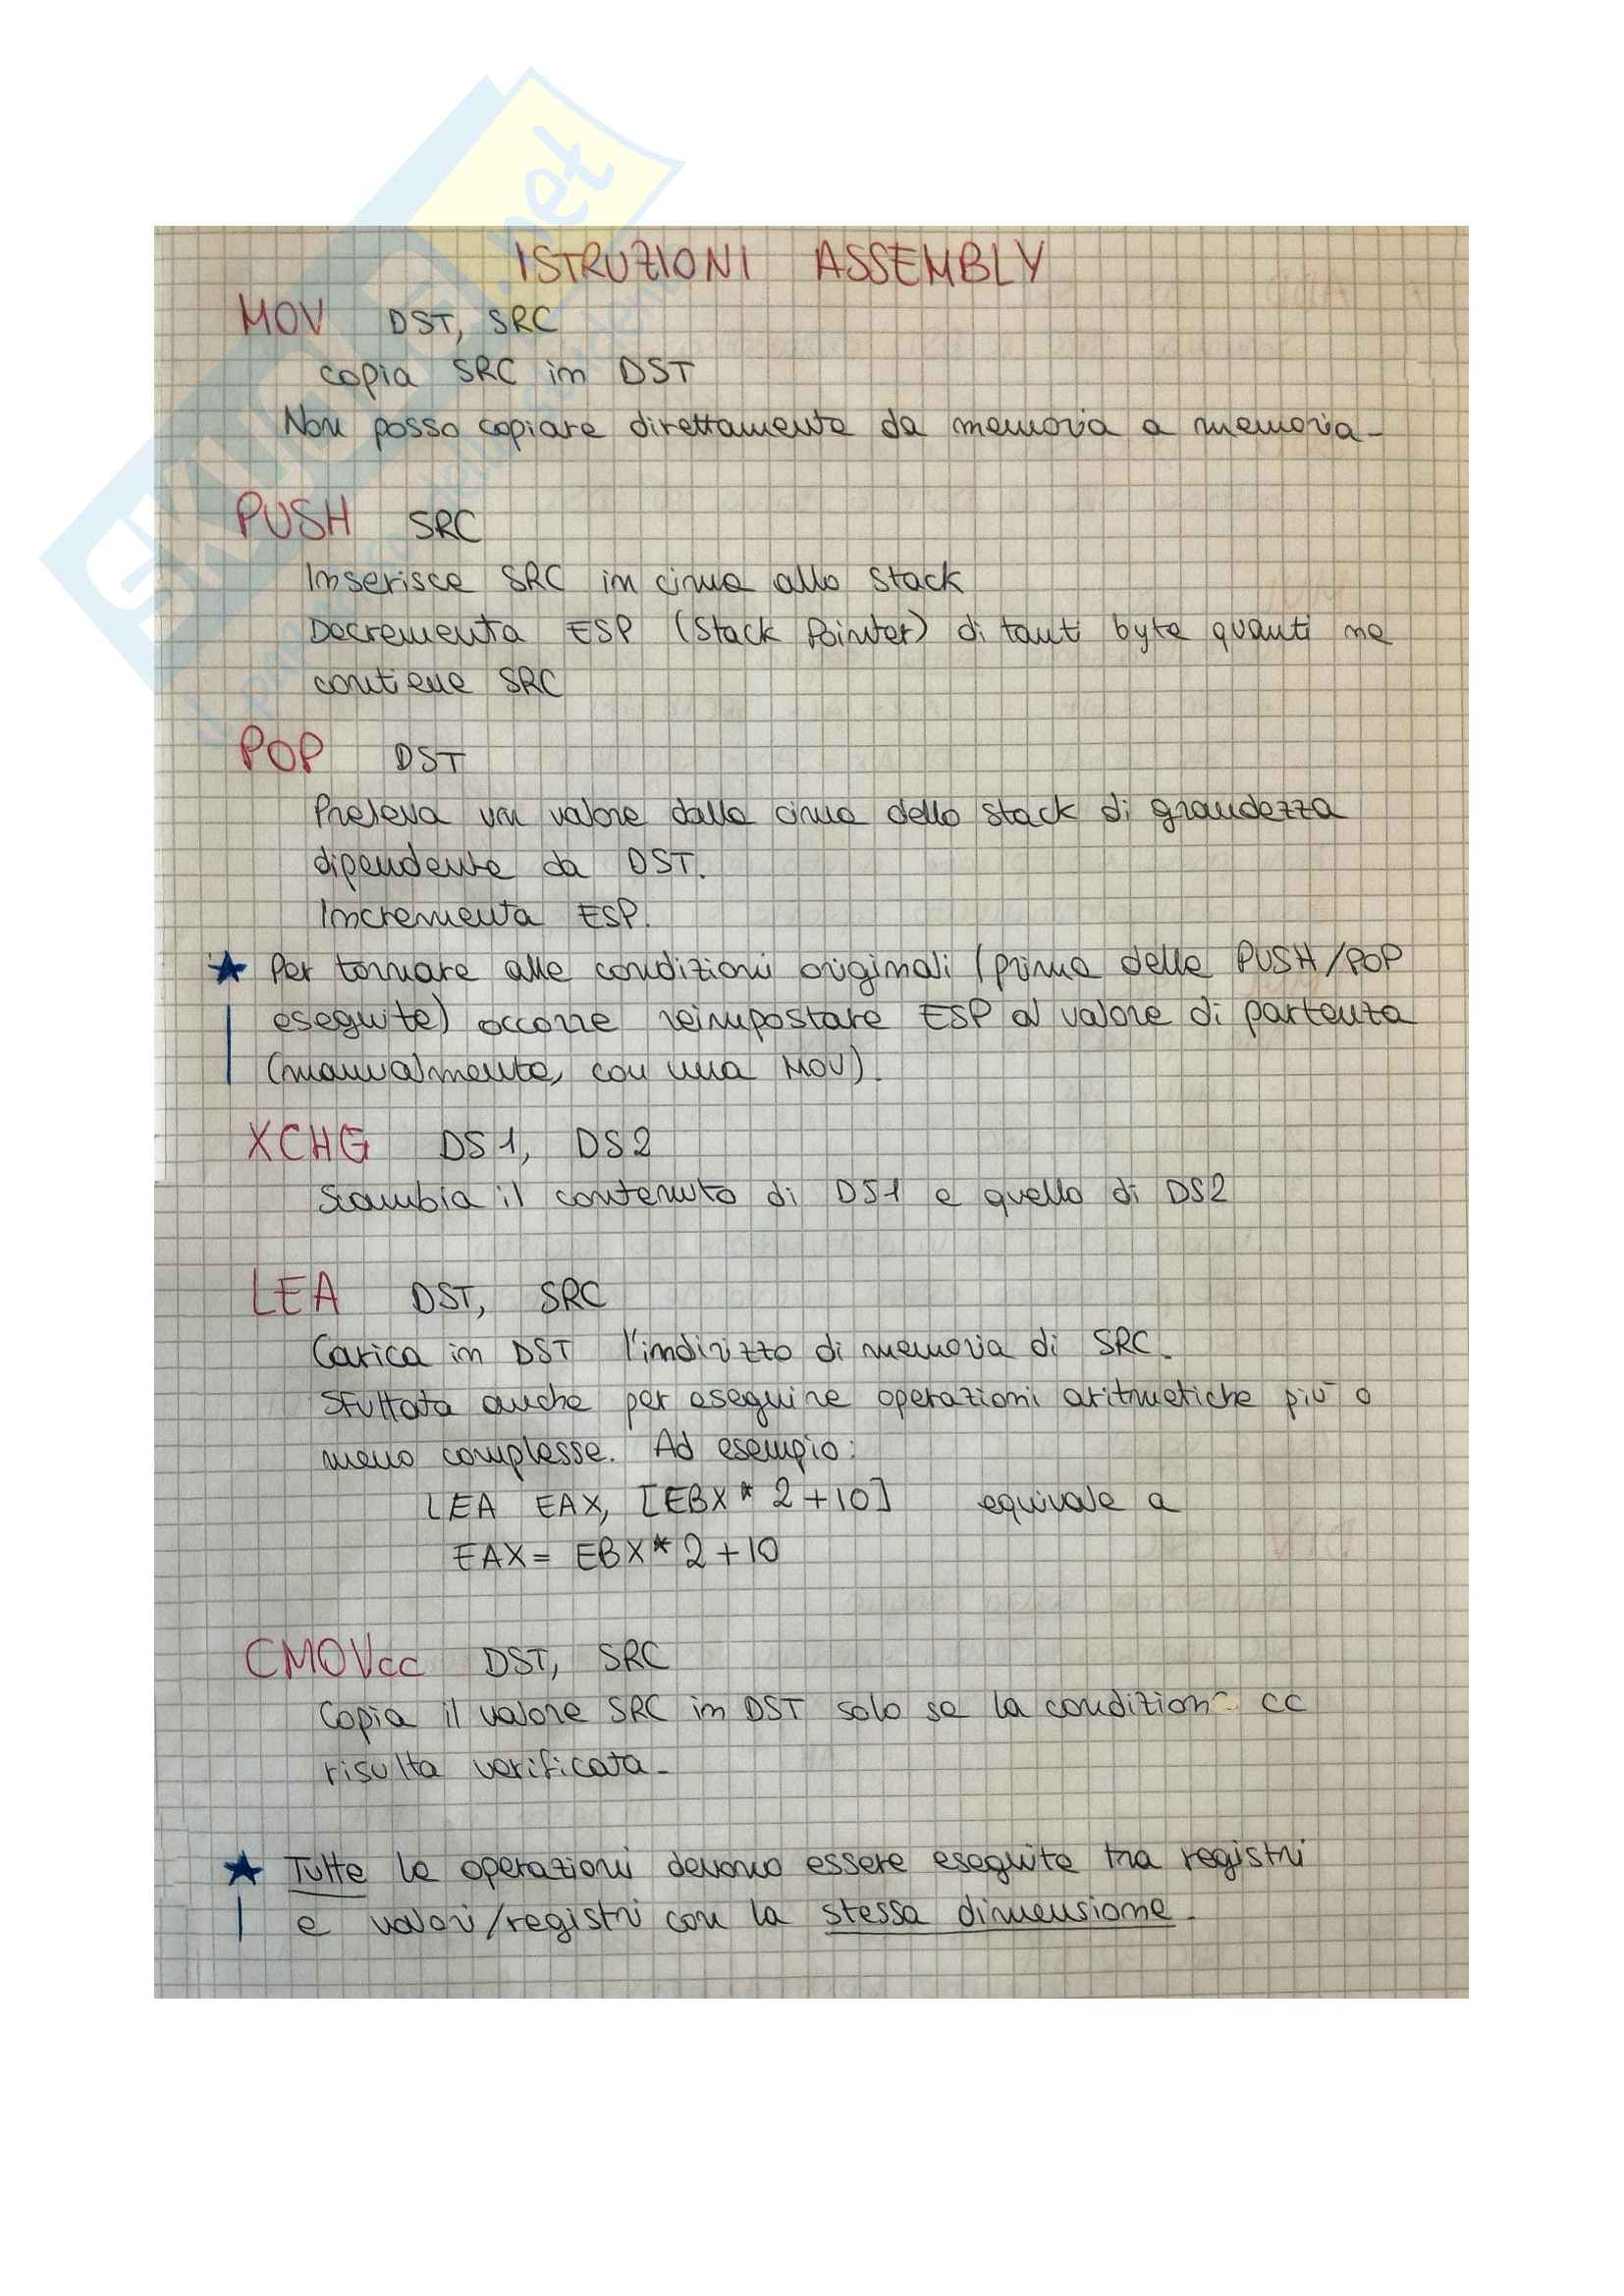 ISTRUZIONI ASSEMBLY
MOV DST, SRC
copia SRC in DST
Non posso copiare direttamente da memoria a memoria.
PUSH SRC
Inserisce SRC in cima allo stack
Decrementa ESP (Stack Pointer) di tanti byte quanti ne
contiene SRC
POP DST
Preleva un valore dalla cima dello stack di grandezza
dipendente da DST.
Incrementa ESP.
★ Per tornare alle condizioni originali (prima delle PUSH/POP
eseguite) occorre reimpostare ESP al valore di partenza
(manualmente, con una MOV).
XCHG DS1, DS2
Scambia il contenuto di DS1 e quello di DS2
LEA DST, SRC
Carica in DST l'indirizzo di memoria di SRC.
Sfuttata anche per eseguire operazioni aritmetiche più o
meno complesse. Ad esempio:
LEA EAX, [EBX * 2 + 10] equivale a
EAX = EBX * 2 + 10
CMOVcc DST, SRC
Copia il valore SRC in DST solo se la condizione cc
risulta verificata.
★ Tutte le operazioni devono essere eseguite tra registri
e valori/registri con la stessa dimensione.
SKUOLA.net